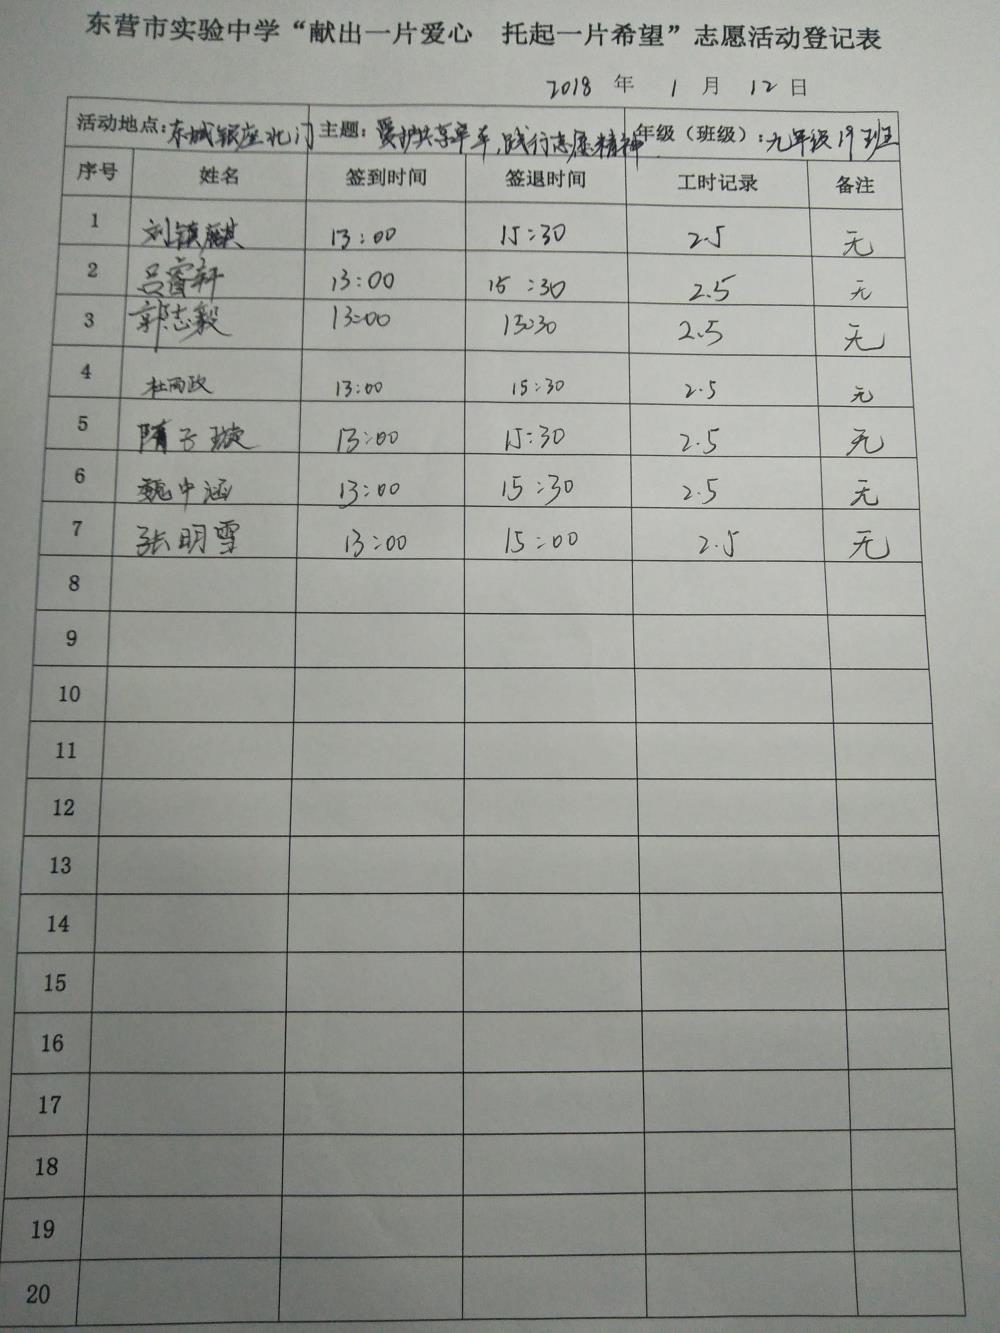 东营市实验中学“献出一片爱心 托起一片希望”志愿活动登记表
2018 年 1 月 12 日
活动地点：东城银座北门 主题：爱护共享单车，践行志愿精神 年级（班级）：九年级19班
序号 姓名 签到时间 签退时间 工时记录 备注
1 刘镇麒 13:00 15:30 2.5 无
2 吕睿轩 13:00 15:30 2.5 无
3 郭志毅 13:00 15:30 2.5 无
4 杜雨政 13:00 15:30 2.5 无
5 隋子璇 13:00 15:30 2.5 无
6 魏中涵 13:00 15:30 2.5 无
7 张明雪 13:00 15:00 2.5 无
8
9
10
11
12
13
14
15
16
17
18
19
20